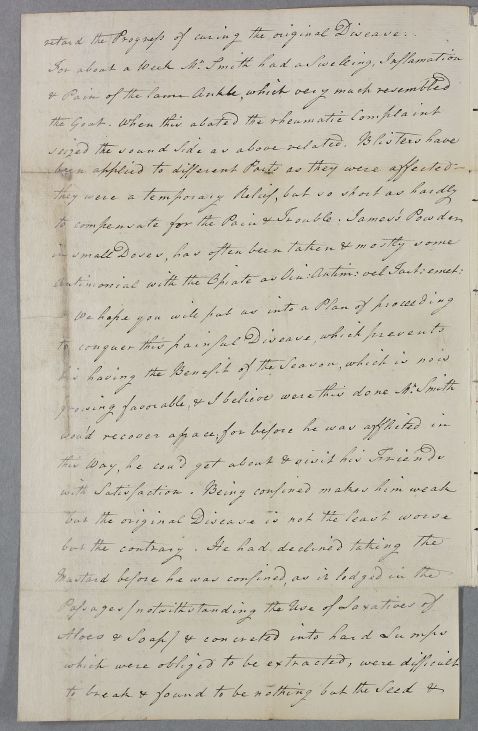 retard the Progress of curing the original Disease.
For about a Week Mr. Smith had a Swelling, Inflamation
& Pain of the lame Ankle, which very much resembled
the Gout. When this abated the rheumatic Complaint
seized the sound Side as above related. Blisters have
been applied to different Parts as they were affected
they were a temporary Relief, but so short as hardly
to compensate for the Pain & Trouble. James's Powder
in small Doses, has often been taken & mostly some
antimonial with the Opiate as Vin: Antim: vel Tart: emet:
We hope you will put us into a Plan of proceeding
to conquer this painful Disease, which prevents
his having the Benefit of the Season, which is now
growing favorable, & I believe were this done Mr. Smith
wou'd recover apace, for before he was afflicted in
this Way, he cou'd get about & visit his Friends
with Satisfaction. Being confined makes him weak
but the original Disease is not the least worse
but the contrary. He had declined taking the
Mustard before he was confined, as it lodged in the
Passages/notwithstanding the Use of Laxatives of
Aloes & Soap/ & concreted into hard Lumps
which were obliged to be extracted, were difficult
to break & found to be nothing but the Seed &